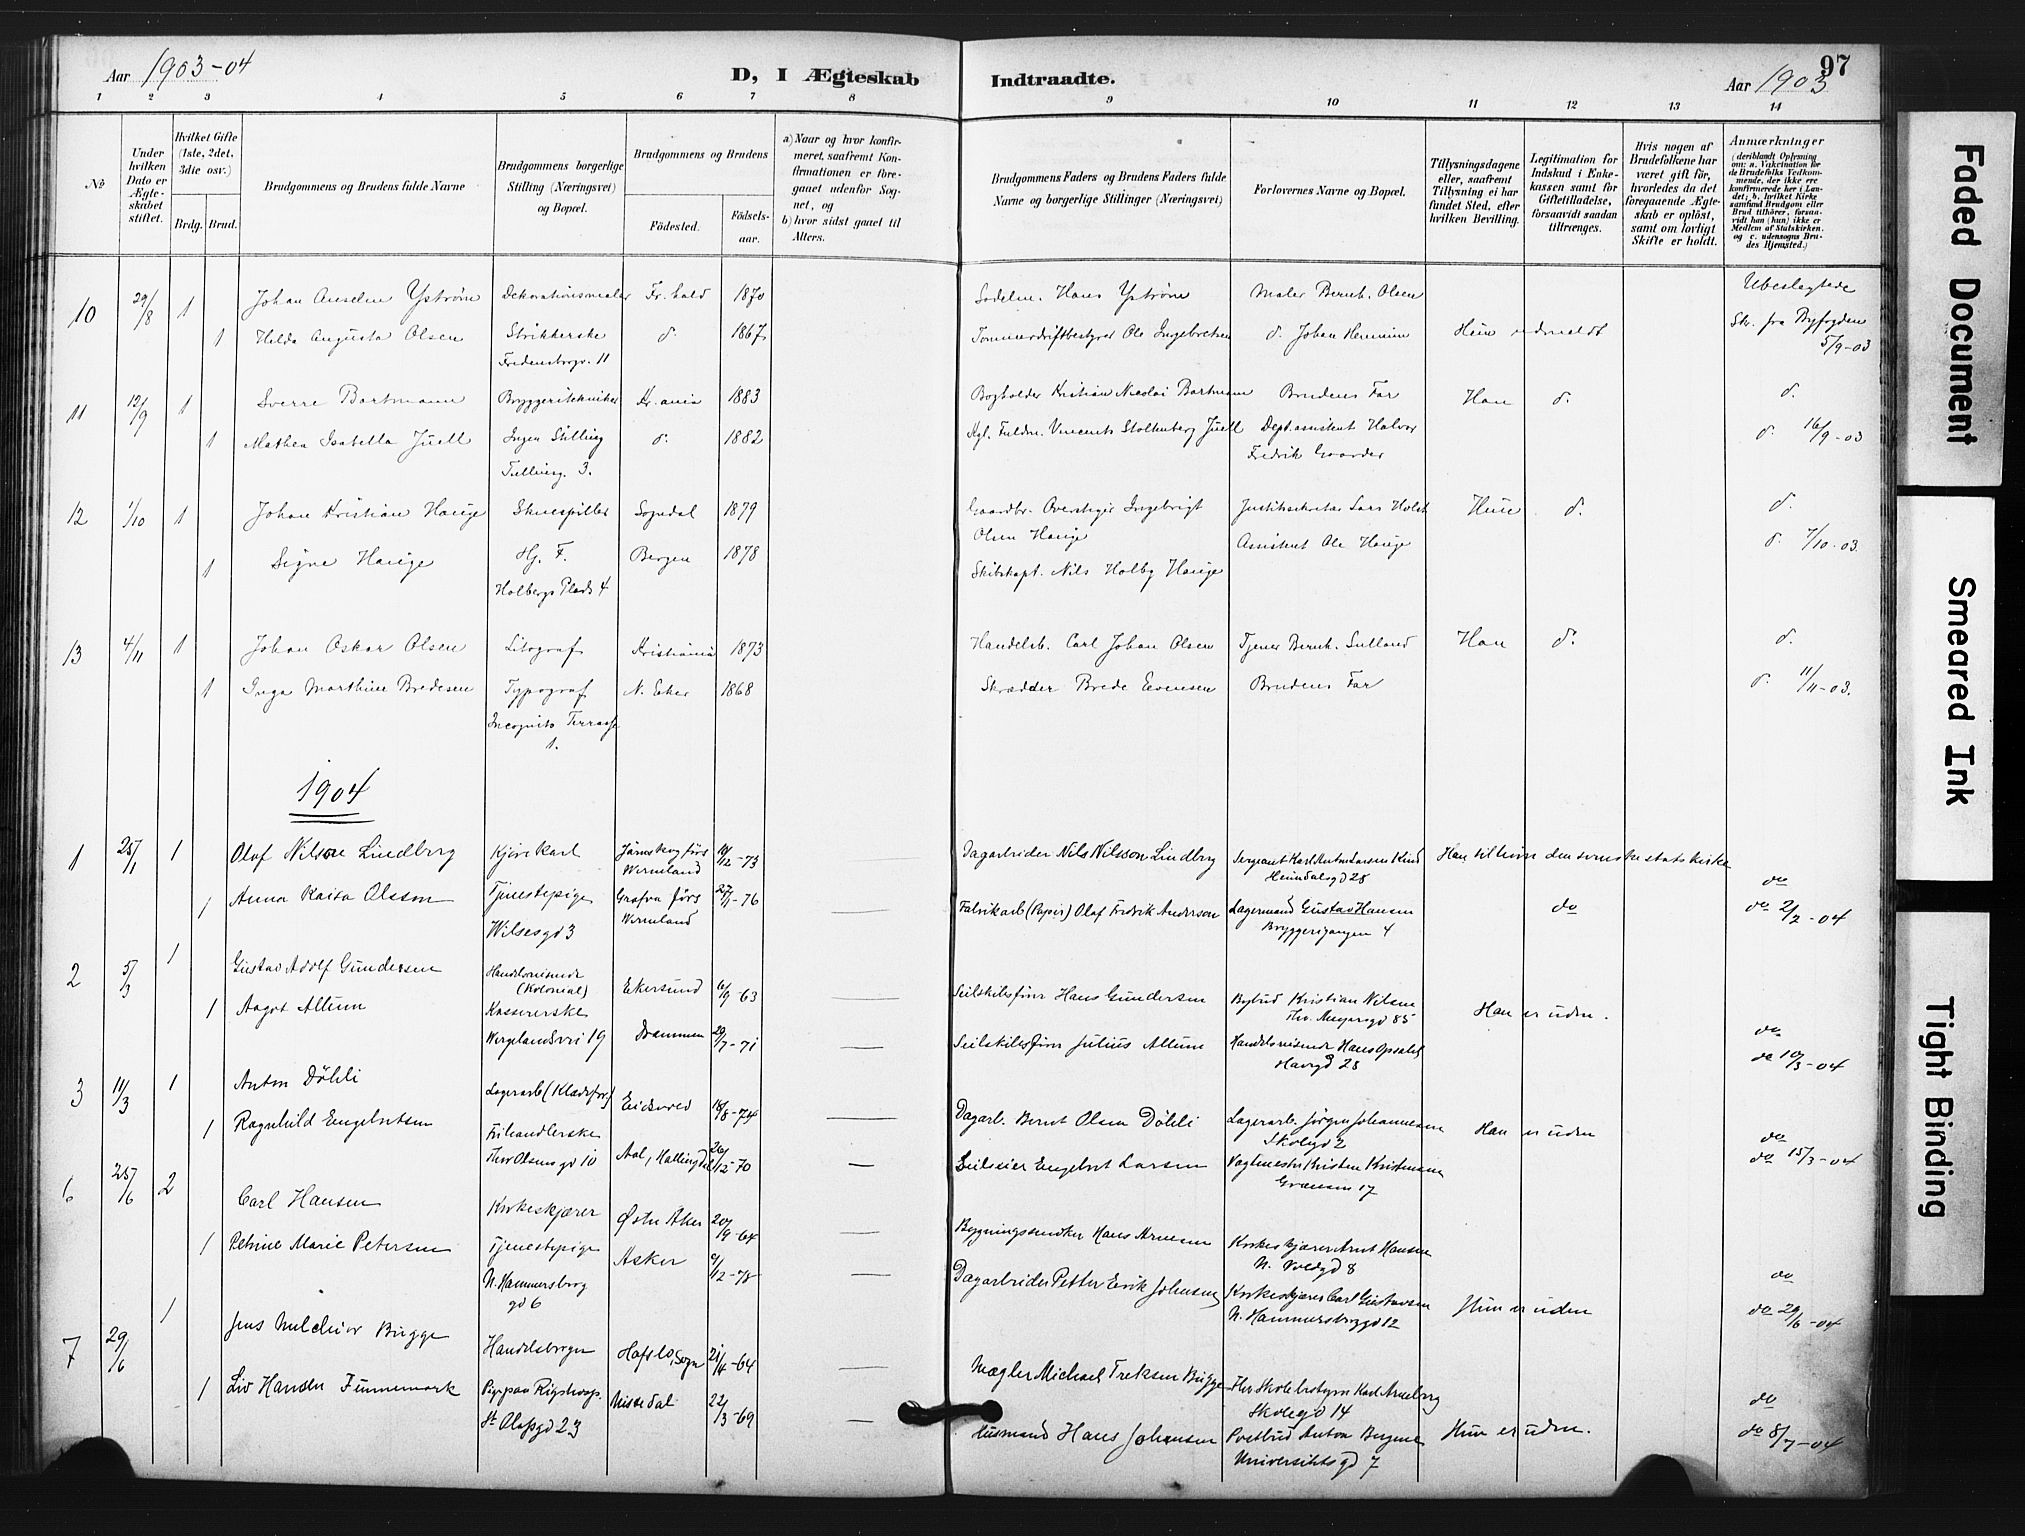 Aar 1903-04
D, I Ægteskab Indtraadte.
Aar 1903
97
1 2 3 4 5 6 7 8 9 10 11 12 13 14
No
Under hvilken Dato er Ægteskabet stiftet.
Hvilket Gifte (1ste, 2det, 3die osv.)
Brdg. Brud.
Brudgommens og Brudens fulde Navne
Brudgommens borgerlige Stilling (Næringsvei) og Bopæl.
Brudgommens og Brudens
Födested. Födsels-aar.
a) Naar og hvor konfirmeret, saafremt Konfirmationen er foregaaet udenfor Sognet, og
b) hvor sidst gaaet til Alters.
Brudgommens Faders og Brudens Faders fulde Navne og borgerlige Stillinger (Næringsvei)
Forlovernes Navne og Bopæl.
Tillysningsdagene eller, saafremt Tillysning ei har fundet Sted, efter hvilken Bevilling.
Legitimation for Indskud i Enkekassen samt for Giftetilladelse, forsaavidt saadan tiltrænges.
Hvis nogen af Brudefolkene har været gift för, hvorledes da det foregaaende Ægteskab er oplöst, samt om lovligt Skifte er holdt.
Anmærkninger
(deriblandt Oplysning om: a. Vakcination for de Brudefolks Vedkommende, der ikke ere konfirmerede her i Landet; b. hvilket Kirkesamfund Brudgom eller Brud tilhörer, forsaavidt han (hun) ikke er Medlem af Statskirken, og c. udensogns Brudes Hjemsted.)
10 29/8 1 Johan Anselm Ystrøm Dekorationsmaler Fr.hald 1870 Hans Ystrøm Maler Bernh. Olsen Ubeslægtede
1 Hilda Augusta Olsen Strikkerske d. 1867 Tømmerdriftbestyrer Ole Ingebretsen d. Johan Hun Skr. fra Byfogden
Fredensborgv. 11 5/9-03
11 12/9 1 Sverre Bartmann Bryggeritekniker Kr.ania 1883 Bogholder Kristian Nicolai Bartmann Brudens Far Han d. d.
1 Mathea Isabella Juell Ingen Stilling d. 1882 Kgl. Fuldm. Vincents Stoltenberg Juell Dept.assistent Halvor d. 16/9-03
Tullinsg. 3. Fredrik Gaarder
12 1/10 1 Johan Kristian Hauge Skuespiller Sogndal 1879 Gaardbr. Ingebrigt Justitssekretær Lars Holst Hun d. d.
Olsen Hauge Assistent Ole Hauge d. 7/10-03.
1 Signe Hauge Hj. F. Bergen 1878 Skibskapt. Nils Holby Hauge
Holbergs Plads 4
13 4/11 1 Johan Oskar Olsen Litograf Kristiania 1873 Handelsb. Carl Johan Olsen Tjener Bernh. Han d. d.
1 Inga Marthine Bredesen Typograf N. Eker 1868 Skrædder Brede Evensen Brudens Far d. 11/11-03.
Incognito Terrasse
1.
1904
1 25/1 1 Olaf Nilsson Lindberg Kjørekarl Järnskog förs Wermland 14/12-73 Dagarbeider Nils Nilsson Lindberg Sergeant Karl Anton Larsen Kind Han tilhører den svenske statskirke
Heimdalsgd 28 do
1 Anna Kaisa Olsson Tjenestepige Grafva förs Wermland 27/11-76 Fabrikarb (Papir) Olof Fredrik Anderson Lagermand Gustav Hansen do do 2/2-04
Wilsesgd 3 Bryggerigangen 4
2 5/3 1 Gustav Adolf Gundersen Handelsreisende (Kolonial) Ekersund 6/9-63 Seilskibsfører Hans Gundersen Bybud Kristian Nilsen Han er uden.
Thv. Meyersgd 85
1 Aagot Allum Kassererske
Wergelandsvei 19 Drammen 29/7-71 Seilskibsfører Julius Allum Handelsreisende Hans Opsahl do
Havsgd 28 do 10/3-04
3 11/3 1 Anton Döhli Lagerarb (Klædeforr) Eidsvold 18/8-74 Dagarb. Bernt Olsen Döhli Lagerarb. Jørgen Johannesen Han er uden
Skolegd 2 do
1 Ragnhild Engebretsen Frihandlerske
Thor Olsens gd 10 Aal, Hallingdal 26/12-70 Seileier Engebret Larsen Vagtmester Kristen Kristensen do 15/3-04
Grænsen 17
6 25/6 2 Carl Hansen Kokeskjører Østre Aker 20/9-64 Bygningssnekker Hans Arnesen Kokeskjører Arnt Hansen
N. Voldgd 8
1 Petrine Marie Petersen Tjenestepige Asker 9/12-78 Dagarbeider Petter Erik Johansen Kokeskjører Carl Gustavsen Hun er uden do
N. Hammersborg gd 6 N. Hammersborggd 12 do 29/6-04
7 29/6 1 Jens Melchior Bugge Handelsborger Hafslo, Sogn 21/4-64 Mægler Michael Treksen Bugge Skolebestyrer Karl Arneberg
Skolegd 14 do
1 Liv Hansen Finnemork Rigshosp. Nissedal 22/3-69 Husmand Hans Johansen Postbud Anton Hun er uden. do 8/7-04
St Olafsgd 23 Universitetsgd 7
Faded Document
Smeared Ink
Tight Binding